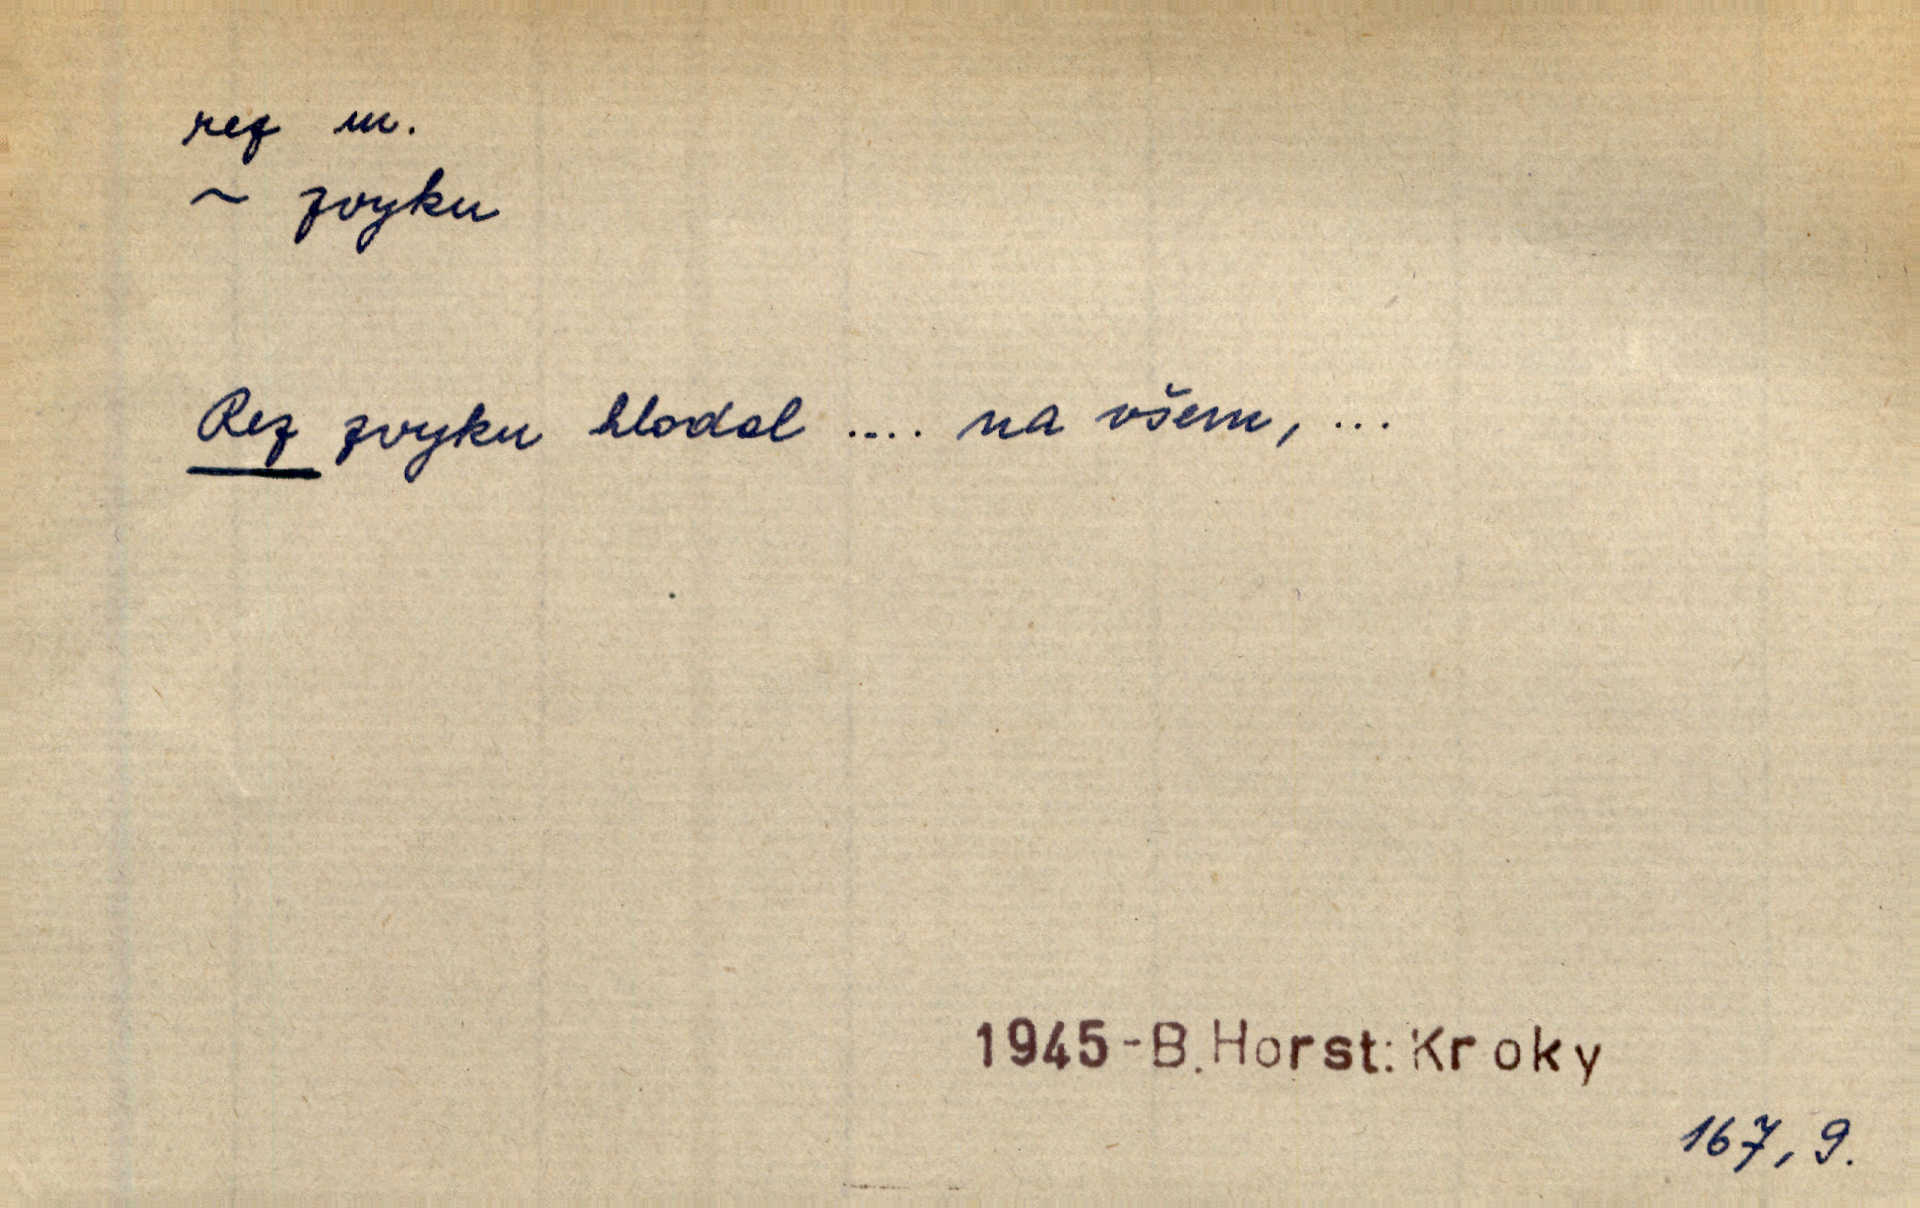 rez m.
~ zvyku
Rez zvyku hlodal .... na všem, ...
1945-B.Horst: Kroky
167, 9.